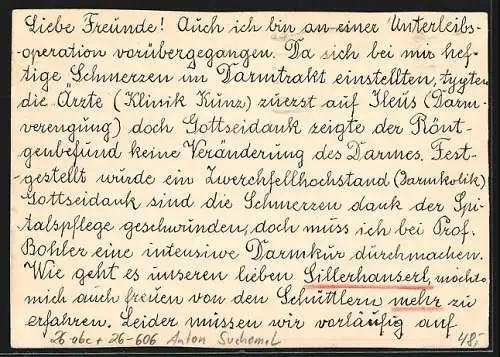 Liebe Freunde! Auch ich bin an einer Unterleibs-
operation vorübergegangen. Da sich bei mir hef-
tige Schmerzen im Darmtrakt einstellten, typten
die Ärzte (Klinik Kunz) zuerst auf Ileus (Darm-
verengung) doch Gottseidank zeigte der Rönt-
genbefund keine Veränderung des Darmes. Fest-
gestellt wurde ein Zwerchfellhochstand (Darmkolik)
Gottseidank sind die Schmerzen dank der Spi-
talspflege geschwunden, doch muss ich bei Prof.
Bohler eine intensive Darmkur durchmachen.
Wie geht es unseren lieben Sillerhanserl, möchte
mich auch freuen von den Schüttlern mehr zu
erfahren. Leider müssen wir vorläufig auf
26 abc + 26-606 Anton 48,-